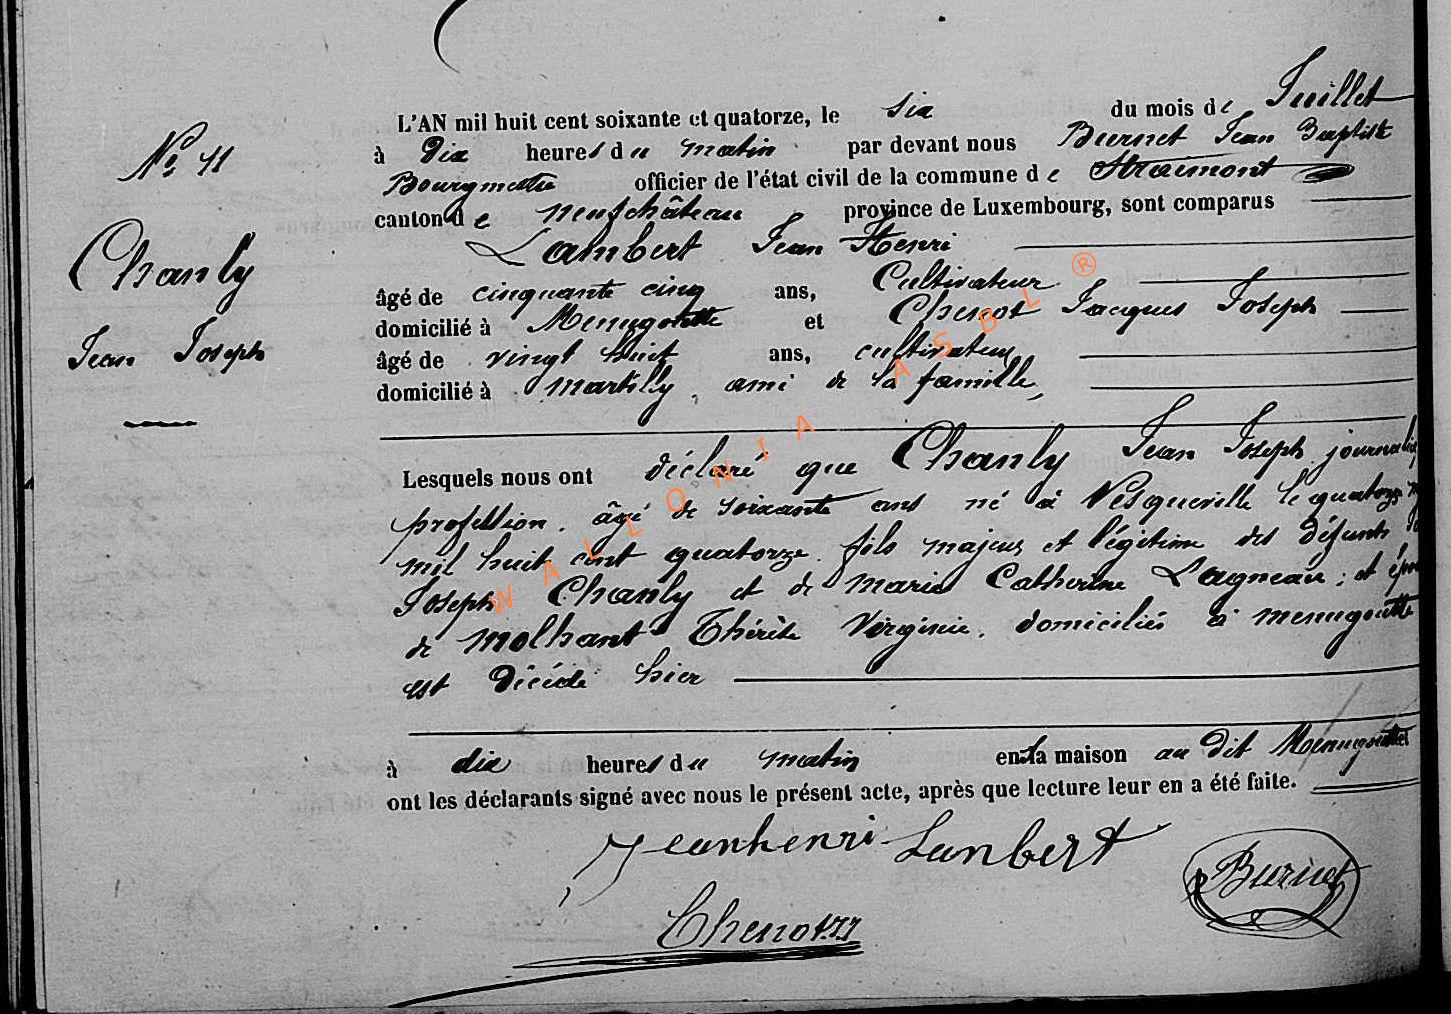 L'AN mil huit cent soixante et quatorze, le Six du mois de Juillet
N° 11
à Dix heures du matin par devant nous Burnet Jean Baptiste
Bourgmestre officier de l'état civil de la commune de Straimont
canton de neufchâteau province de Luxembourg, sont comparus
Chanly
Lambert Jean Henri
âgé de cinquante cinq ans, Cultivateur
domicilié à Menugoutte et Chenot Jacques Joseph
Jean Joseph
âgé de vingt huit ans, cultivateur
domicilié à martilly, ami de la famille,
Lesquels nous ont déclaré que Chanly Jean Joseph
profession, âgé de soixante ans né à Vesqueville le quatorze
mil huit cent quatorze fils majeur et légitime des défunts
Joseph Chanly et de marie Catherine Lagneau; et
de molhant Thérèse Virginie, domiciliés à menugoutte
est décédé hier
à dix heures du matin en la maison au dit Menugoutte
ont les déclarants signé avec nous le présent acte, après que lecture leur en a été faite.
Jeanhenri Lanbert
Burnet
Chenot JJ
WALLONIA ASBL ®